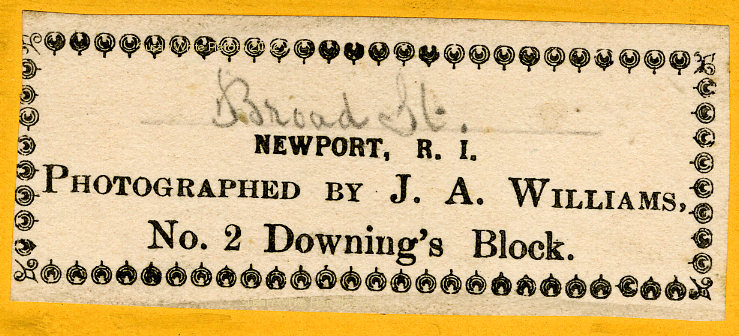 Broad St.
NEWPORT, R. I.
PHOTOGRAPHED BY J. A. WILLIAMS,
No. 2 Downing's Block.